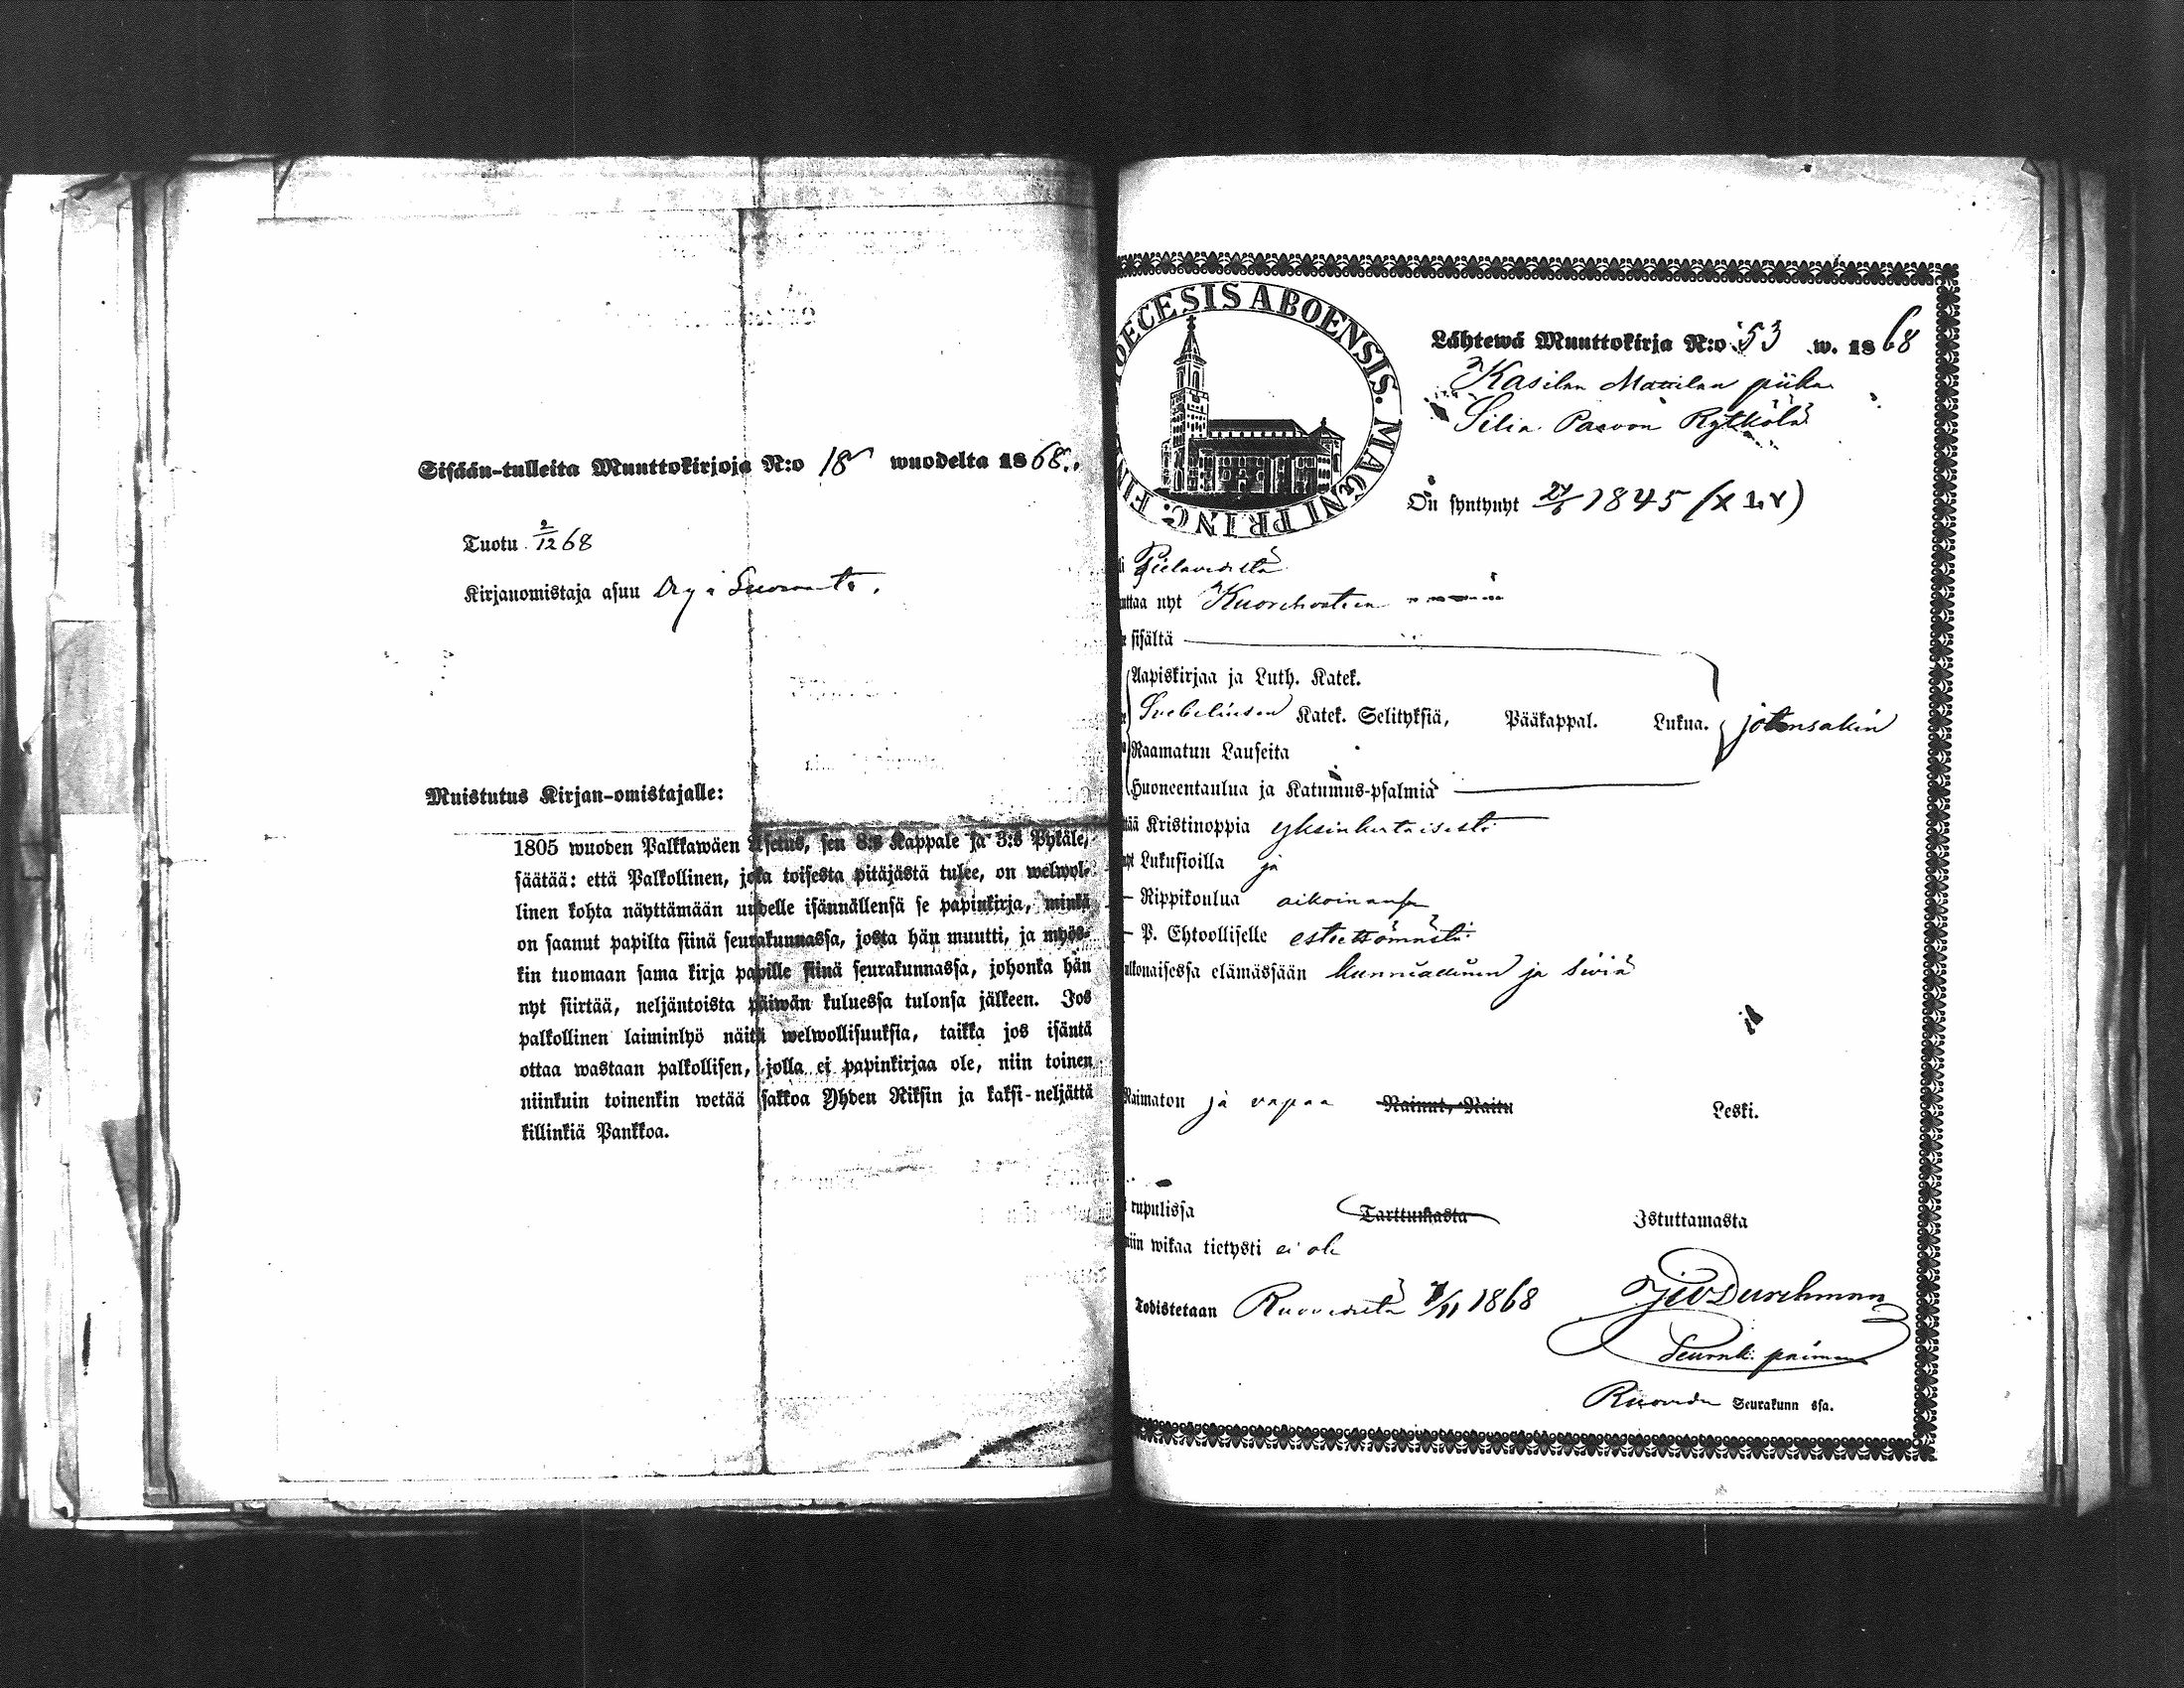 Sisään-tulleita Muuttokirjoja N:o 18 wuodelta 1868.
Tuotu 2/12 68
Kirjanomistaja asuu
Muistutus Kirjan-omistajalle:
1805 wuoden Palkkawäen Asetus, sen 8:s Kappale ja 3:s Pykäle,
säätää: että Palkollinen, joka toisesta pitäjästä tulee, on welwol-
linen kohta näyttämään uudelle isännällensä se papinkirja, minkä
on saanut papilta siinä seurakunnassa, josta hän muutti, ja myös-
kin tuomaan sama kirja papille siinä seurakunnassa, johonka hän
nyt siirtää, neljäntoista päiwän kuluessa tulonsa jälkeen. Jos
palkollinen laiminlyö näitä welwollisuuksia, taikka jos isäntä
ottaa wastaan palkollisen, jolla ei papinkirjaa ole, niin toinen
niinkuin toinenkin wetää sakkoa Yhden Riksin ja kaksi-neljättä
killinkiä Pankkoa.
OECESIS ABOENSIS. MAGNI PRINC. FIN
Lähtewä Muuttokirja N:o 53 w. 1868
Kasilan Mattilan piika
Silia Paavon Rytkölä
On syntynyt 27/6 1845
Pielavedeltä
uttaa nyt Kuorehveteen
sisältä
Aapiskirjaa ja Luth. Katek.
Svebeliusen Katek. Selityksiä, Pääkappal. Lukua. jotensakin
Raamatun Lauseita
Huoneentaulua ja Katumus-psalmia
tää Kristinoppia yksinkertaisesti
Lukusioilla ja
— Rippikoulua aikoinansa
— P. Ehtoolliselle esteettömästi
ulkonaisessa elämässään kunniallinen ja siviä
Naimaton ja vapaa Nainut, Naitu Leski.
rupulissa Tarttumasta Istuttamasta
niin wikaa tietysti ei ole
Todistetaan Ruovedeltä 7/11 1868
Durchman
Seurak. paimen
Ruoveden Seurakunn ssa.